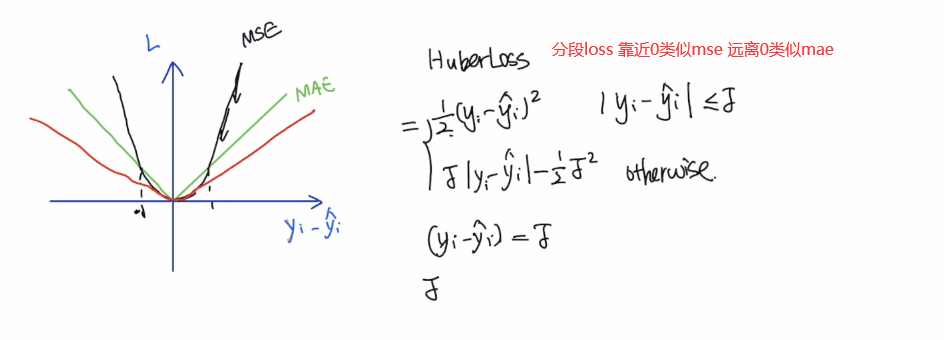 L
MSE
MAE
-1
1
yi - ŷi
HuberLoss 分段loss 靠近0类似mse 远离0类似mae
= { 1/2 (yi - ŷi)² |yi - ŷi| ≤ J
J |yi - ŷi| - 1/2 J² otherwise.
(yi - ŷi) = J
J